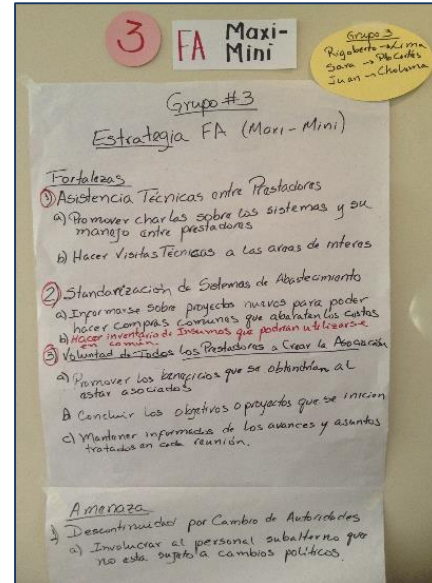 3
FA Maxi-
Mini
Grupo 3
Rigoberto → Lima
Sara → Pto Cortés
Juan → Choloma
Grupo #3
Estrategia FA (Maxi-Mini)
Fortalezas
1) Asistencia Técnicas entre Prestadores
a) Promover charlas sobre los sistemas y su
manejo entre prestadores
b) Hacer Visitas Técnicas a las areas de interes
2) Standarización de Sistemas de Abastecimiento
a) Informarse sobre proyectos nuevos para poder
hacer compras comunes que abaraten los costos
b) Hacer inventario de Insumos que podrian utilizarse
en común.
3) Voluntad de Todos los Prestadores a Crear la Asociación
a) Promover los beneficios que se obtendrían al
estar asociados
B Concluir los objetivos o proyectos que se inicien
c) Mantener informados de los avances y asuntos
tratados en cada reunión.
Amenaza
1) Descontinuidad por Cambio de Autoridades
a) Involucrar al personal subalterno que
no esta sujeto a cambios políticos.